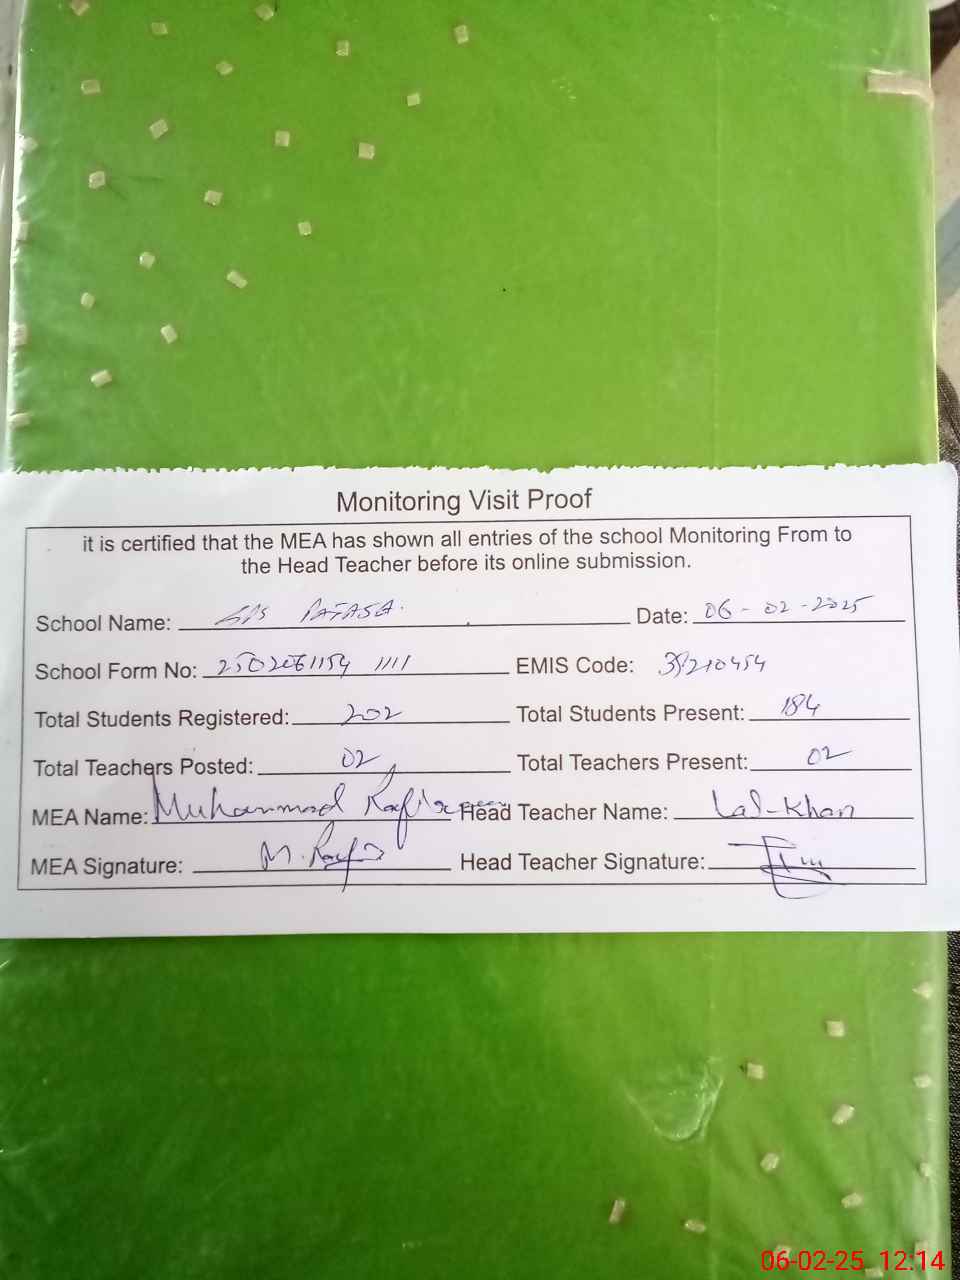 Monitoring Visit Proof
it is certified that the MEA has shown all entries of the school Monitoring From to
the Head Teacher before its online submission.
School Name: GPS PATASA. Date: 06-02-2025
School Form No: 2502061154 1111 EMIS Code: 39210454
Total Students Registered: 202 Total Students Present: 184
Total Teachers Posted: 02 Total Teachers Present: 02
MEA Name: Muhammad Head Teacher Name: Lal-Khan
MEA Signature: M. Head Teacher Signature:
06-02-25 12:14